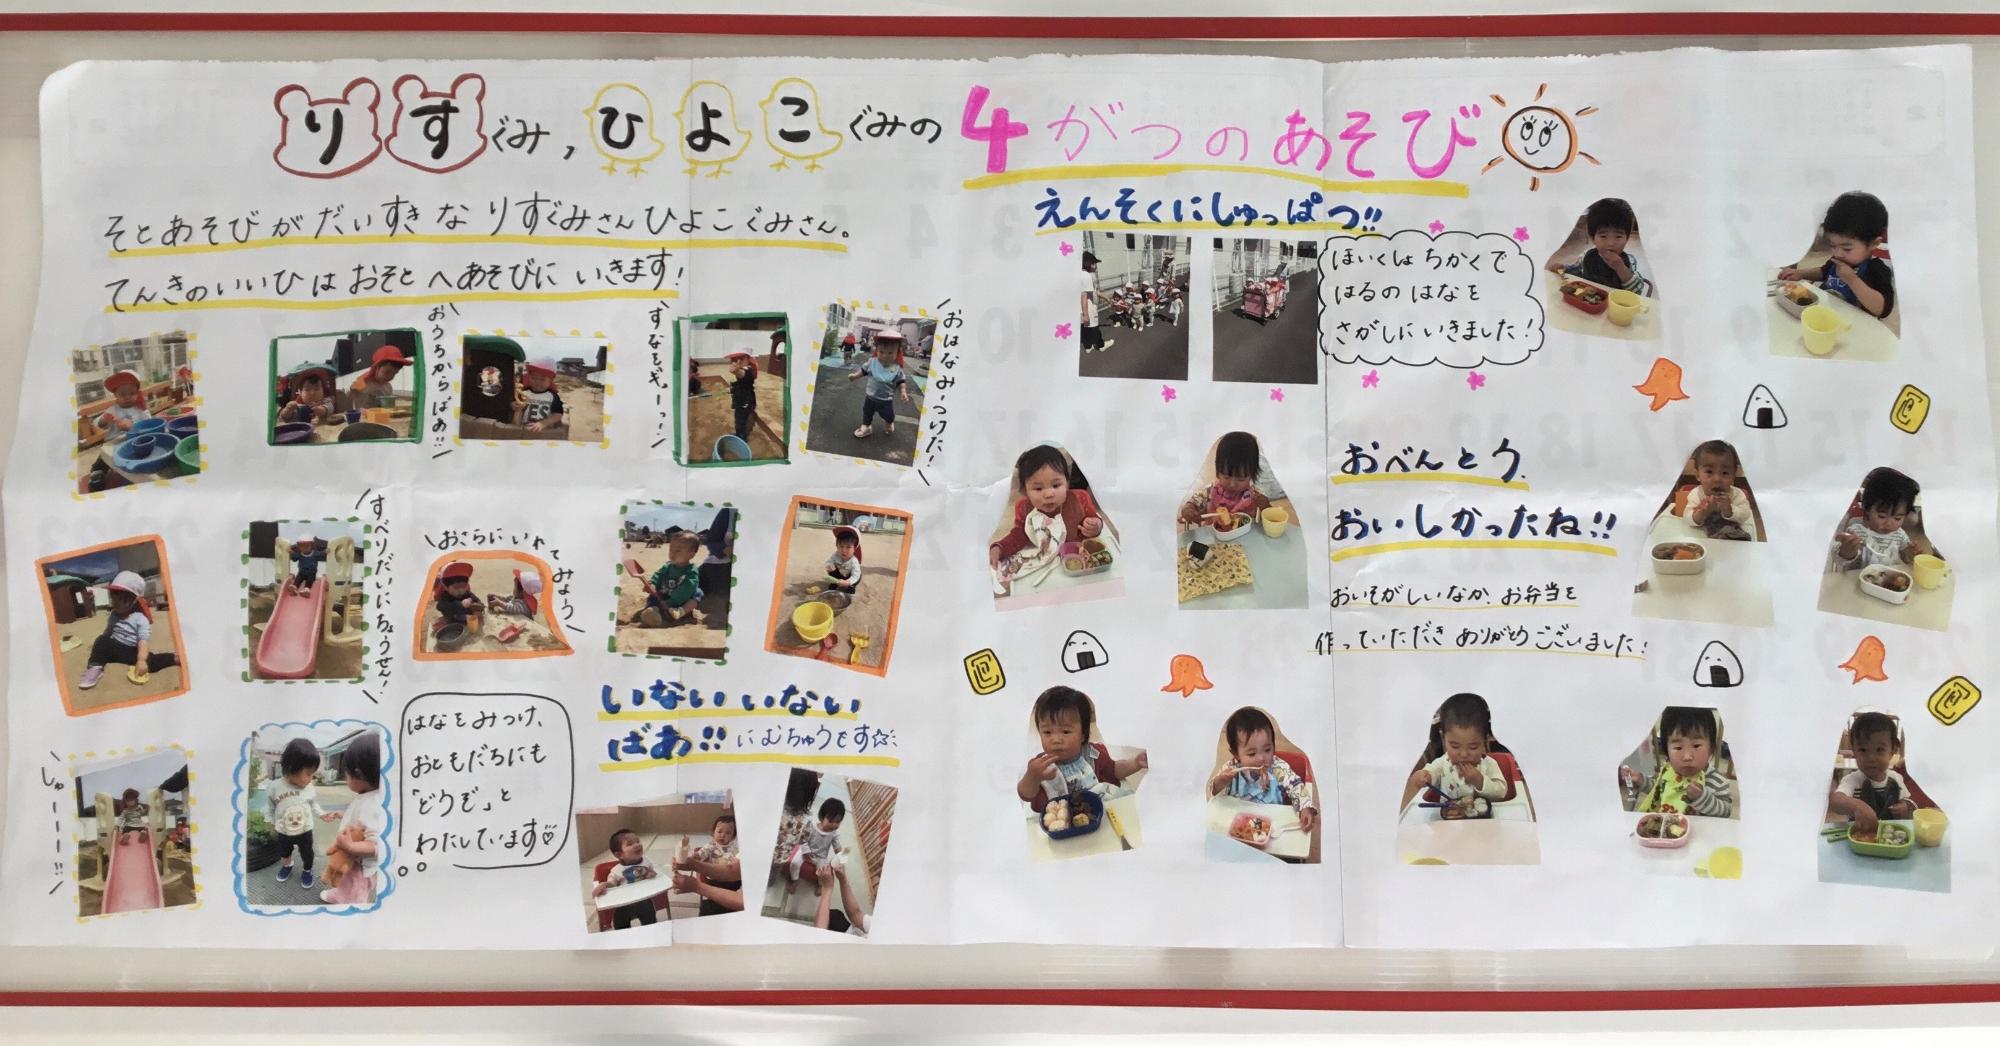 りすぐみ,ひよこぐみの4がつのあそび
そとあそびがだいすきなりすぐみさんひよこぐみさん。
てんきのいいひはおそとへあそびにいきます!
おうちからばあ!!
すなをぎゅーっ!
おはなみーつけた!
すべりだいにちょうせん!
おさらにいれてみよう
しゅーーーー!!
はなをみつけ、
おともだちにも
「どうぞ」と
わたしています♡
いないいない
ばあ!!にむちゅうです☆
えんそくにしゅっぱつ!!
ほいくしょちかくで
はるのはなを
さがしにいきました!
おべんとう
おいしかったね!!
おいそがしいなか、お弁当を
作っていただきありがとうございました!